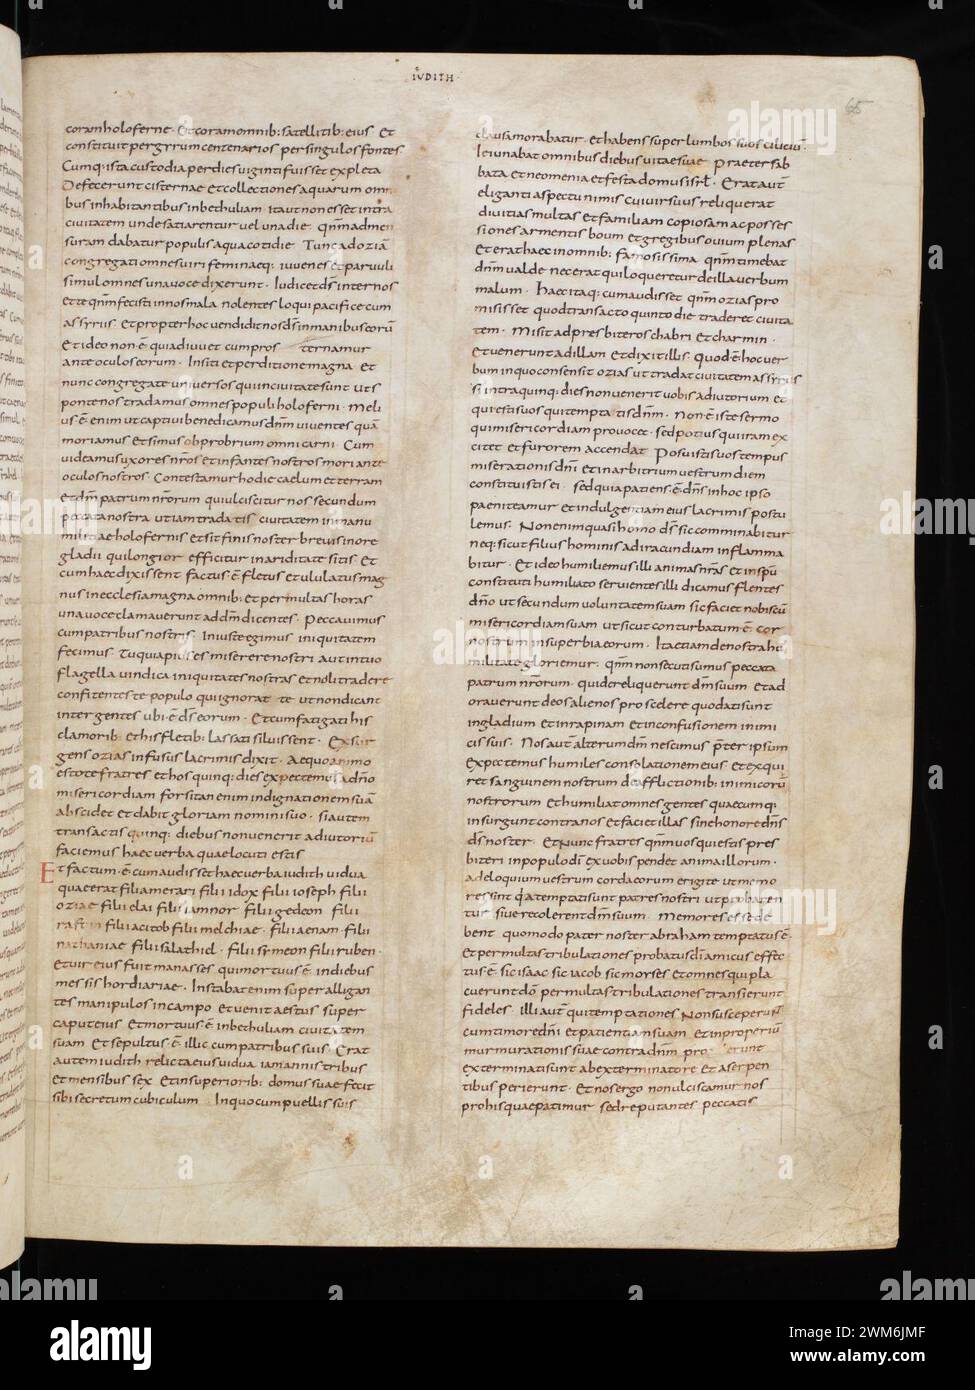 IUDITH
65
coram holoferne · Et coram omnib; satellitib; eius Et
constituit per gyrum centenarios per singulos fontes
Cumq; ista custodia per dies uiginti fuisset expleta
Defecerunt cisternae et collectiones aquarum omni
bus inhabitantibus in bethuliam ita ut non esset intra
ciuitatem unde satiarentur uel una die qnm ad men
suram dabatur populis aqua cotidie Tunc ad oziā
congregati omnes uiri feminaeq; iuuenes et paruuli
simul omnes una uoce dixerunt · Iudicet ds inter nos
et te qnm fecisti in nos mala nolentes loqui pacifice cum
assyriis Et propter hoc uendidit nos ds in manibus eorū
Et ideo non ē qui adiuuet cum pros ternamur
ante oculos eorum · In siti et perditione magna et
nunc congregate uniuersos qui in ciuitate sunt ut s
ponte nos tradamus omnes populi holoferni · Meli
us ē enim ut captiui benedicamus dnm uiuentes quā
moriamus et simus obprobrium omni carni Cum
uideamus uxores nr̄os et infantes nostros mori ante
oculos nostros · Contestamur hodie caelum et terram
et dm patrum nr̄orum qui ulciscitur nos secundum
peccata nostra ut iam tradatis ciuitatem in manu
militiae holofernis et sit finis noster breuis in ore
gladii qui longior efficitur in ariditate sitis Et
cum haec dixissent factus ē fletus et ululatus mag
nus in ecclesia magna omnib; et per multas horas
una uoce clamauerunt ad dm dicentes Peccauimus
cum patribus nostris Iniuste egimus iniquitatem
fecimus Tu quia pius es miserere nostri aut in tuo
flagella uindica iniquitates nostras et noli tradere
confitentes te populo qui ignorat te ut non dicant
inter gentes ubi ē ds eorum · Et cum fatigati his
clamorib; et his fletib; lassati siluissent · Exsur
gens ozias infusus lacrimis dixit · Aequo animo
estote fratres et hos quinq; dies expectemus a dno
misericordiam forsitan enim indignationem suā
abscidet et dabit gloriam nomini suo · si autem
transactis quinq; diebus non uenerit adiutoriū
faciemus haec uerba quae locuti estis
Et factum ē cum audisset haec uerba iudith uidua
quae erat filia merari filii idox filii ioseph filii
oziae filii elai filii iamnor filii gedeon filii
filii acitob filii melchiae · filii aenam filii
nathaniae filii salathiel · filii symeon filii ruben ·
Et uir eius fuit manasses qui mortuus ē in diebus
messis hordiariae · Instabat enim super alligan
tes manipulos in campo et uenit aestus super
caput eius Et mortuus ē in bethuliam ciuitatem
suam Et sepultus ē illic cum patribus suis · Erat
autem iudith relicta eius uidua iam annis tribus
et mensibus sex Et in superiorib; domus suae fecit
sibi secretum cubiculum · In quo cum puellis suis
clausa morabatur · et habens super lumbos suos ciliciū ·
Ieiunabat omnibus diebus uitae suae Praeter sab
bata et neomenia et festa domus isrł · Erat aut̄
eliganti aspectu nimis cui uir suus reliquerat
diuitias multas et familiam copiosam ac posses
siones armentis boum et gregibus ouium plenas
et erat haec in omnib; famosissima qnm timebat
dnm ualde nec erat qui loqueretur de illa uerbum
malum · Haec itaq; cum audisset qnm ozias pro
misisset quod transacto quinto die traderet ciuita
tem · Misit ad presbiteros chabri et charmin ·
Et uenerunt ad illam et dixit illis · quod ē hoc uer
bum in quo consensit ozias ut tradat ciuitatem assyriis
si intra quinq; dies non uenerit uobis adiutorium et
qui estis uos qui tempta tis dnm · Non ē iste sermo
qui misericordiam prouocet · sed potius qui iram ex
citet et furorem accendat Posuistis uos tempus
miserationis dni et in arbitrium uestrum diem
constituistis ei · sed quia patiens ē dns in hoc ipso
paeniteamur et indulgentiam eius lacrimis postu
lemus · Non enim quasi homo ds sic comminabitur
neq; sicut filius hominis ad iracundiam inflamma
bitur · Et ideo humiliemus illi animas nr̄as et in spū
constituti humiliato seruientes illi dicamus flentes
dno ut secundum uoluntatem suam sic faciet nobiscū
misericordiam suam ut sicut conturbatum ē cor
nostrum in superbia eorum · Ita etiam de nostra hu
militate gloriemur · qnm non secuti sumus peccata
patrum nr̄orum · qui dereliquerunt dm suum Et ad
orauerunt deos alienos pro scelere quo dati sunt
in gladium et in rapinam et in confusionem inimi
cis suis · Nos aut̄ alterum dm nescimus p̄ter ipsum
Expectemus humiles consolationem eius Et exqui
ret sanguinem nostrum de afflictionib; inimicorū
nostrorum et humiliat omnes gentes quaecumq;
insurgunt contra nos et faciet illas sine honore dns
ds noster · Et nunc fratres qnm uos qui estis pres
biteri in populo di ex uobis pendet anima illorum ·
ad eloquium uestrum corda eorum erigite ut memo
res sint q̄a temptati sunt patres nostri ut probaren
tur si uere colerent dm suum · Memores esse de
bent quomodo pater noster abraham temptatus ē ·
Et per multas tribulationes probatus di amicus effec
tus ē sic isaac sic iacob sic moyses et omnes qui pla
cuerunt dō per multas tribulationes transierunt
fideles Illi aut̄ qui temptationes non susceperunt
cum timore dni et patientiam suam et inproperiū
murmurationis suae contra dnm pro erunt
exterminati sunt ab exterminatore Et a serpen
tibus perierunt · Et nos ergo non ulciscamur nos
pro his quae patimur sed reputantes peccatis
alamy
Image ID: 2WM6JMF
www.alamy.com